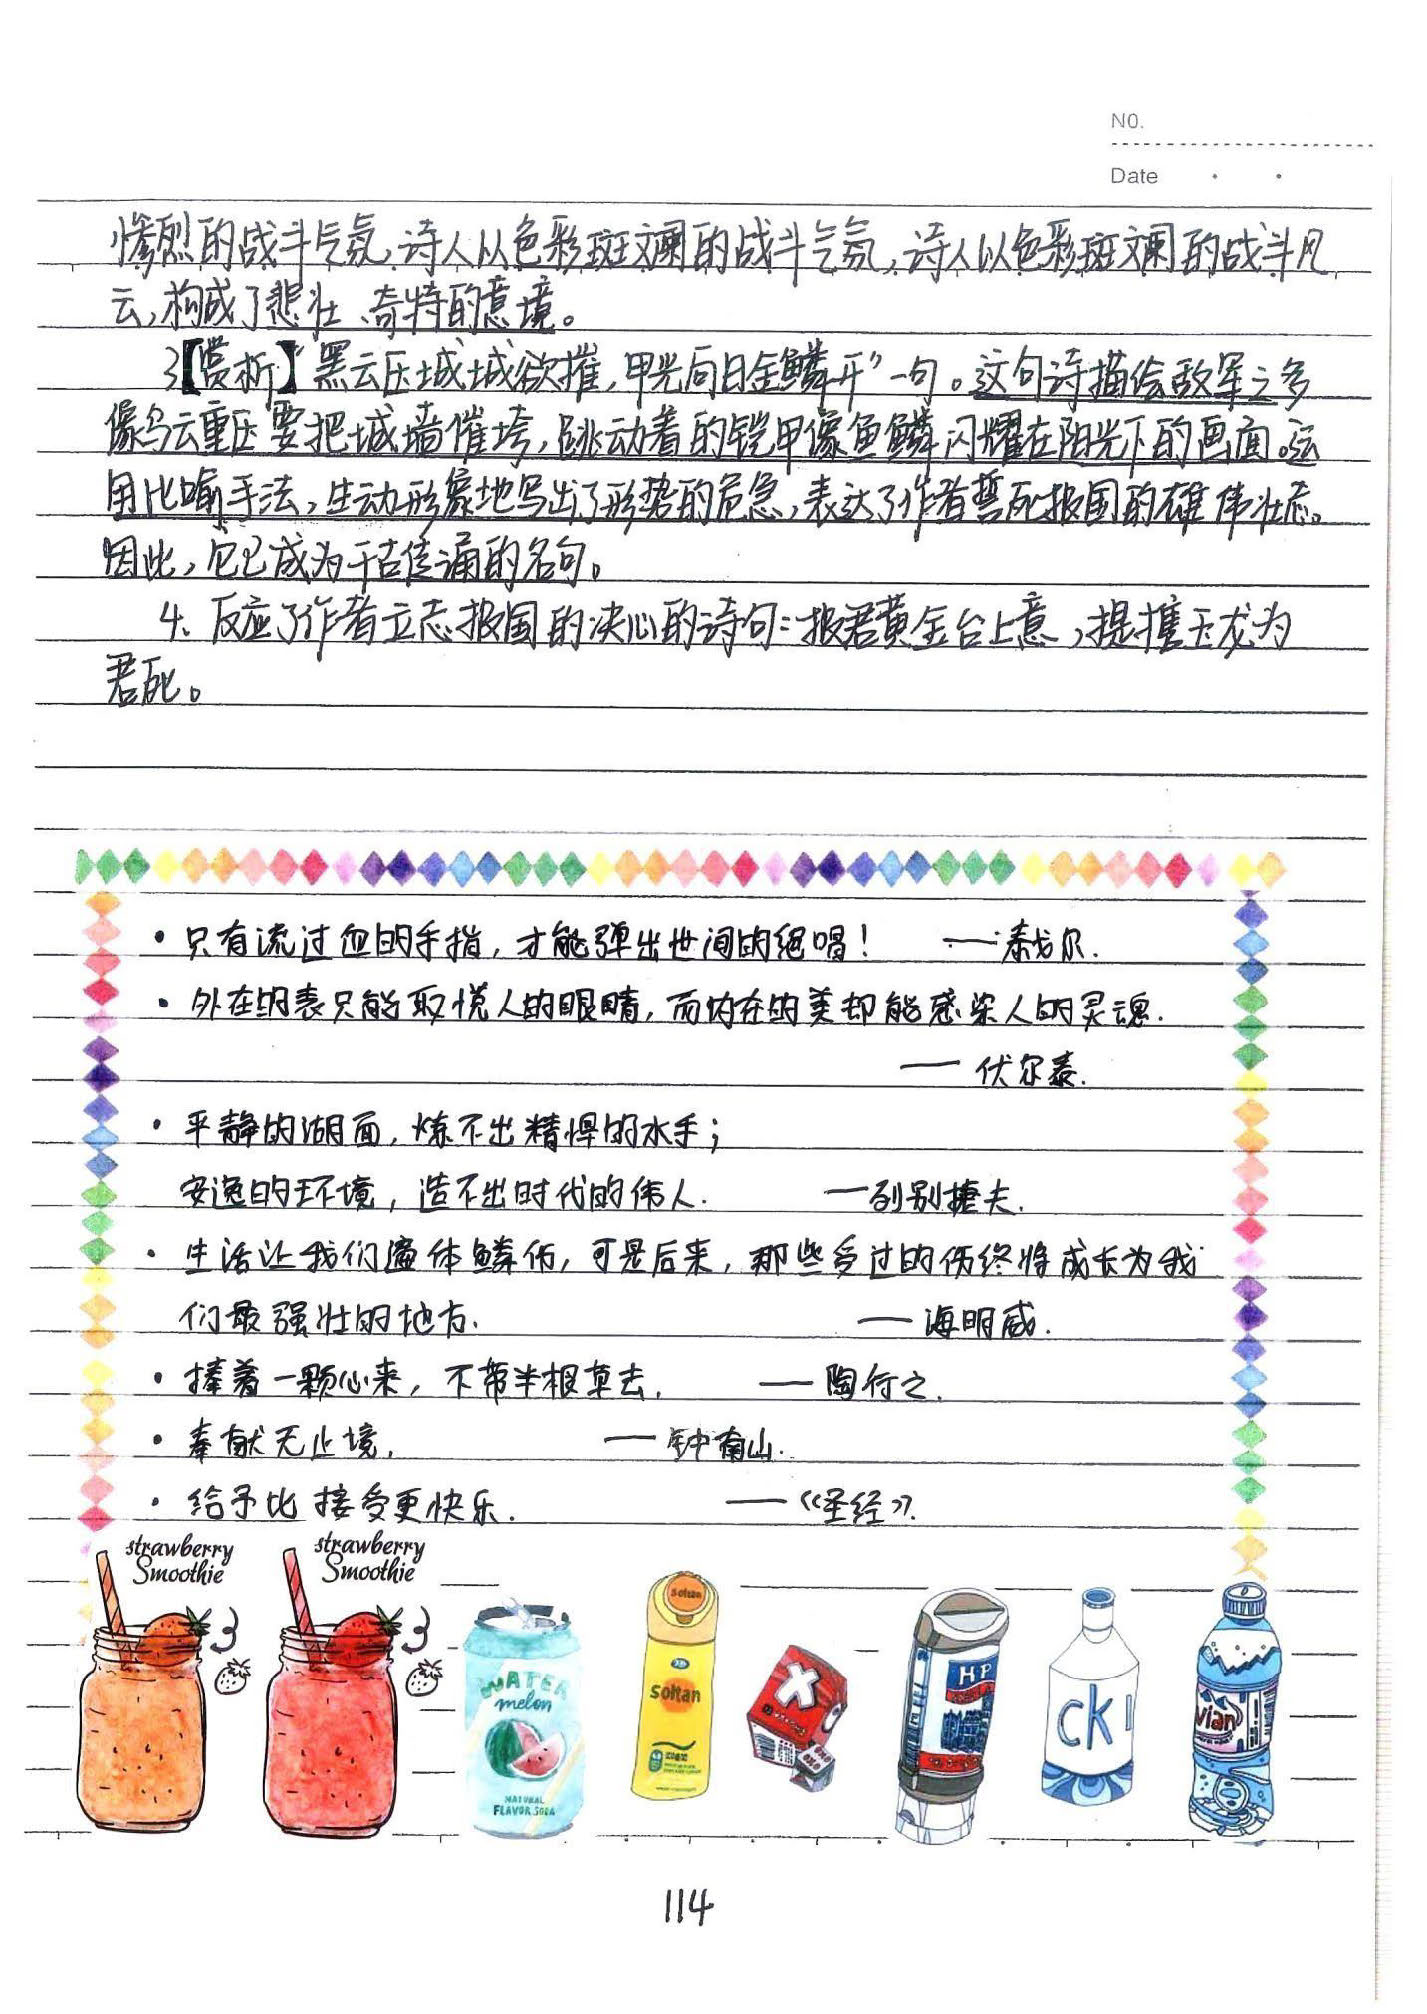 NO.
Date
惨烈的战斗气氛,诗人以色彩斑斓的战斗气氛,诗人以色彩斑斓的战斗风
云,构成了悲壮、奇特的意境。
3【赏析】“黑云压城城欲摧,甲光向日金鳞开”一句。这句诗描绘敌军之多
像乌云重压要把城墙催垮,跳动着的铠甲像鱼鳞闪耀在阳光下的画面。运
用比喻手法,生动形象地写出了形势的危急,表达了作者誓死报国的雄伟壮志。
因此,它已成为千古传诵的名句。
4、反应了作者立志报国的决心的诗句:报君黄金台上意,提携玉龙为
君死。
·只有流过血的手指,才能弹出世间的绝唱! ——泰戈尔.
·外在的表只能取悦人的眼睛,而内在的美却能感染人的灵魂.
——伏尔泰.
·平静的湖面,炼不出精悍的水手;
安逸的环境,造不出时代的伟人. —列别捷夫.
·生活让我们遍体鳞伤,可是后来,那些受过的伤终将成长为我
们最强壮的地方. ——海明威.
·捧着一颗心来,不带半根草去. ——陶行之.
·奉献无止境. ——钟南山.
·给予比接受更快乐. ——《圣经》.
strawberry
Smoothie
strawberry
Smoothie
WATER
melon
NATURAL
FLAVOR SODA
soltan
soltan
X
HP
CK
vian
114